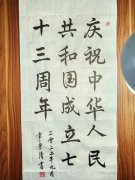 庆祝中华人民
共和国成立七
十三周年
二零二二年九月